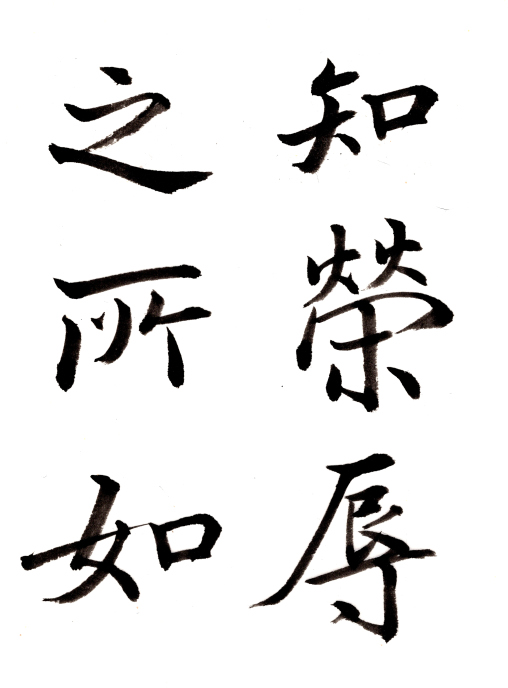 知榮辱
之所如